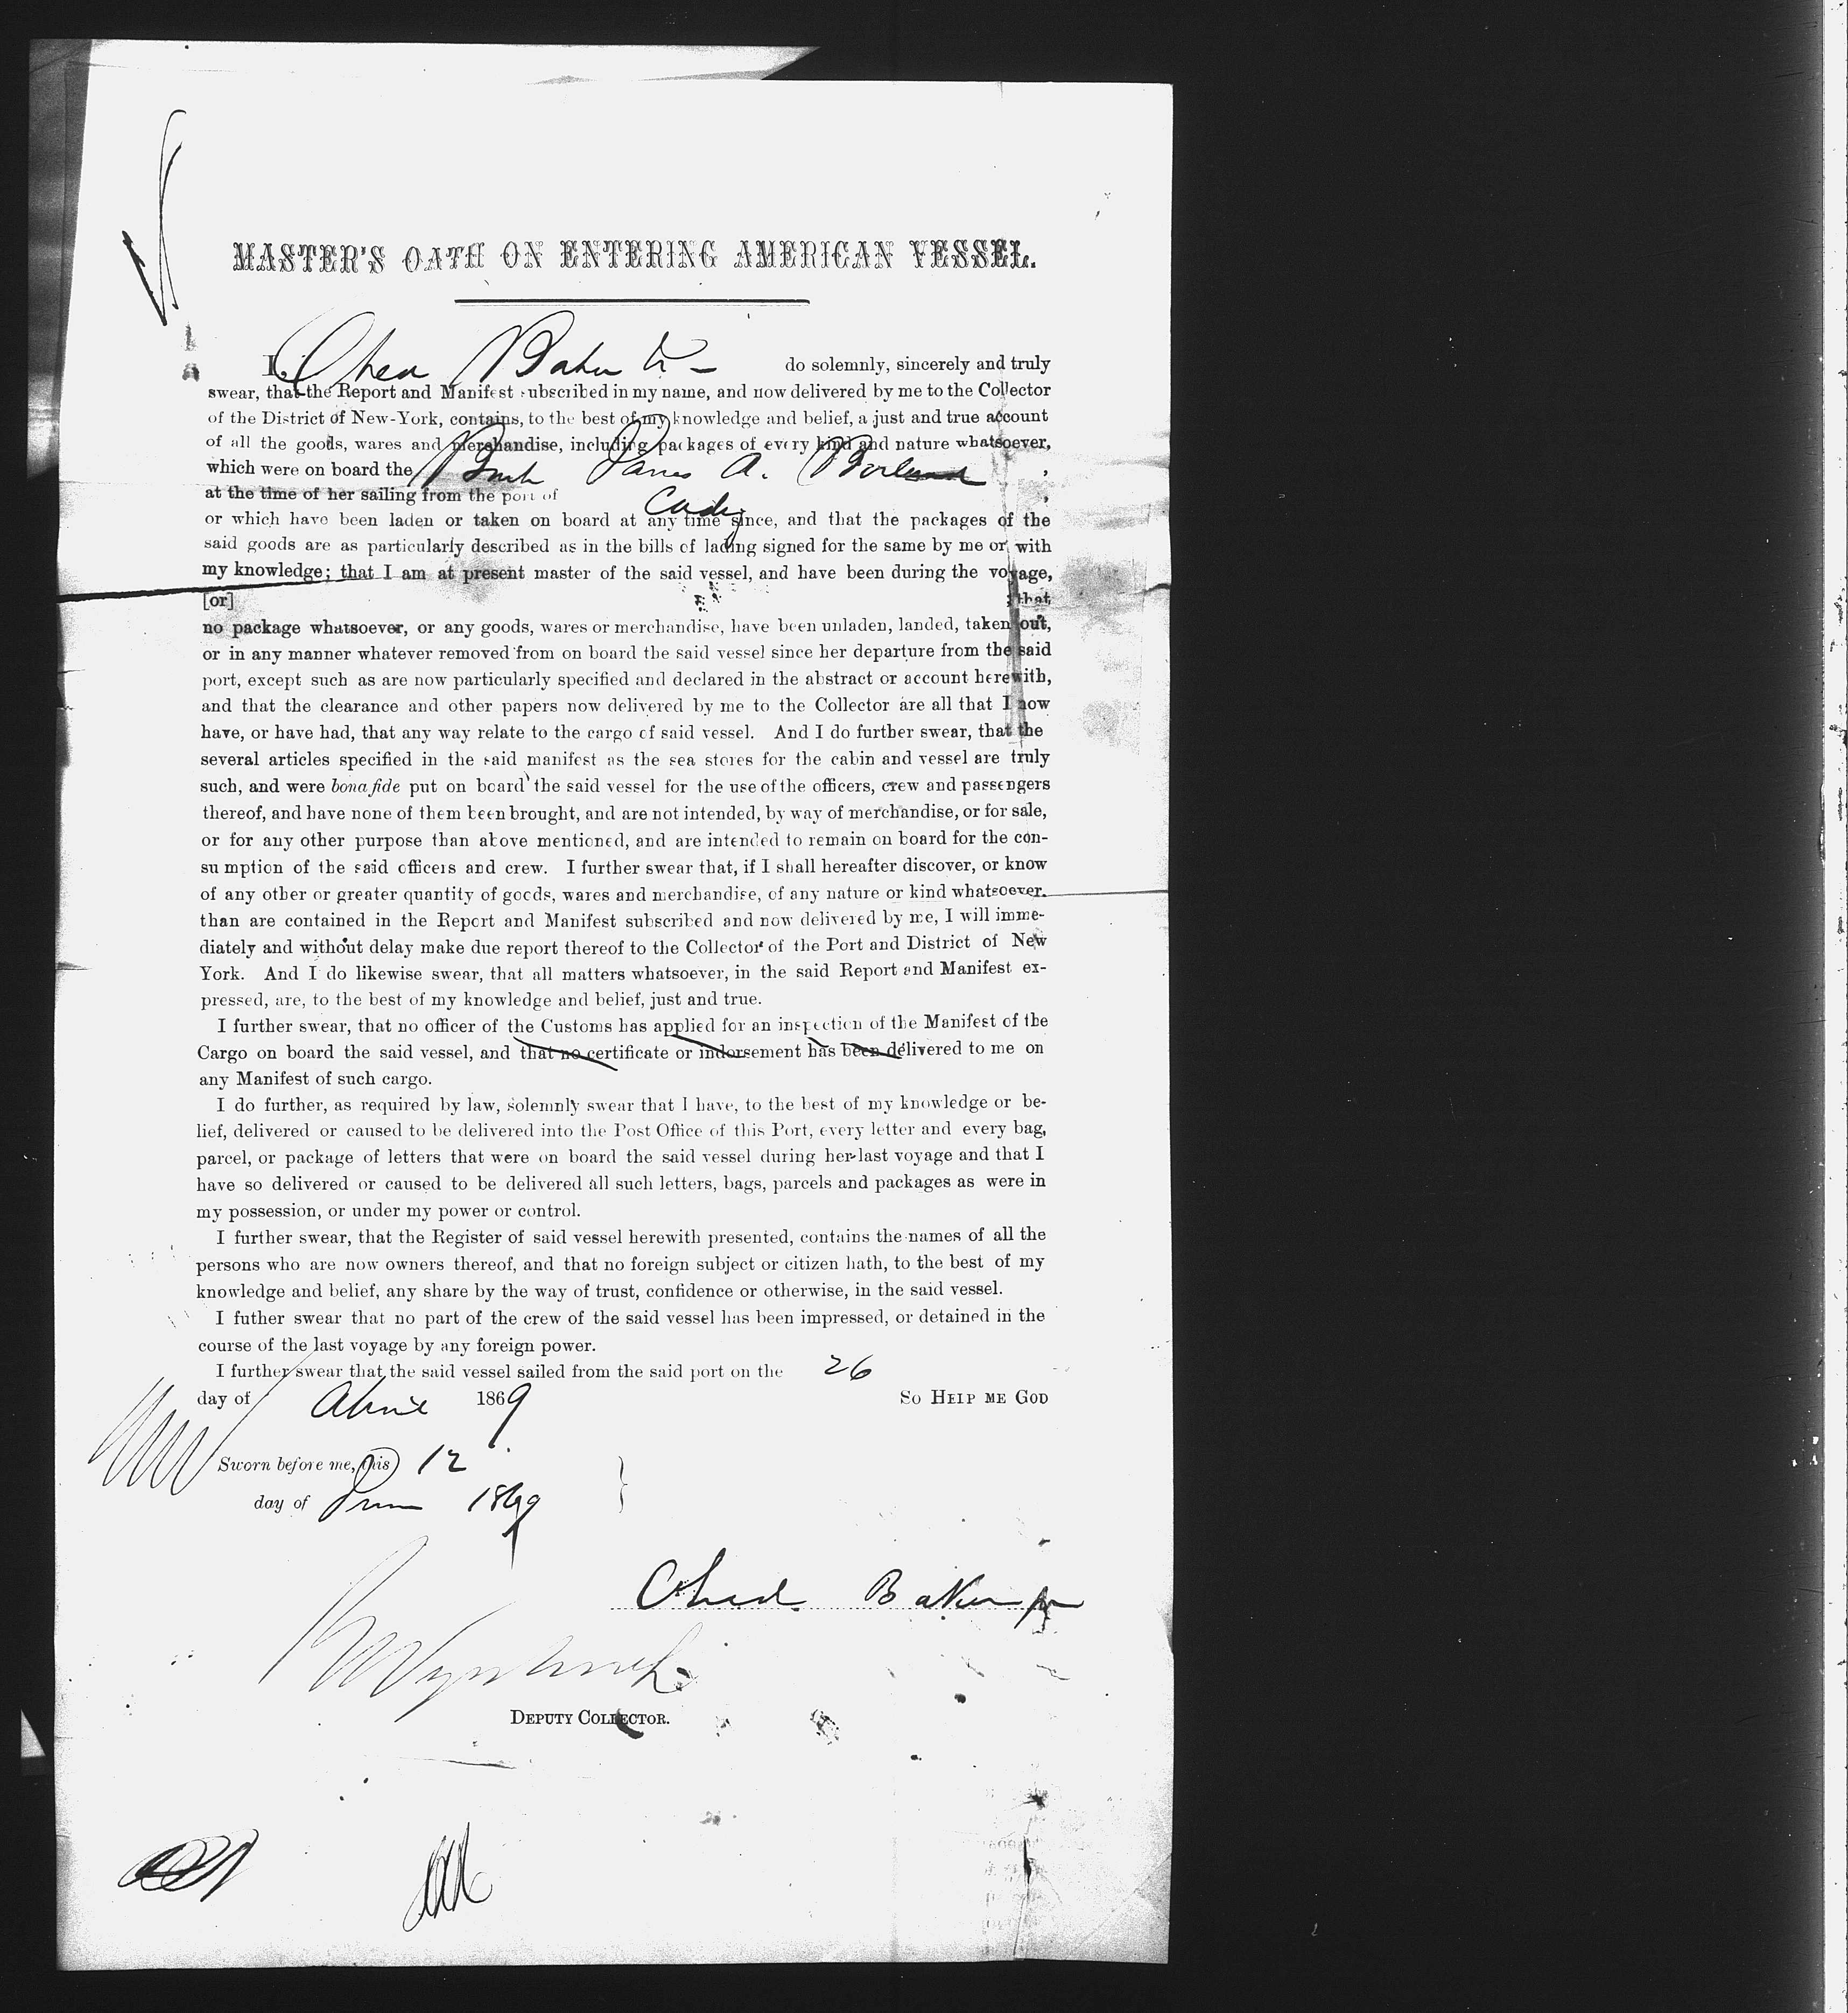 MASTER'S OATH ON ENTERING AMERICAN VESSEL.
I, Obed Baker Jr — do solemnly, sincerely and truly
swear, that the Report and Manifest subscribed in my name, and now delivered by me to the Collector
of the District of New-York, contains, to the best of my knowledge and belief, a just and true account
of all the goods, wares and merchandise, including packages of every kind and nature whatsoever,
which were on board the Bark James A. Borland ,
at the time of her sailing from the port of Cadiz ,
or which have been laden or taken on board at any time since, and that the packages of the
said goods are as particularly described as in the bills of lading signed for the same by me or with
my knowledge; that I am at present master of the said vessel, and have been during the voyage,
[or] ; that
no package whatsoever, or any goods, wares or merchandise, have been unladen, landed, taken out,
or in any manner whatever removed from on board the said vessel since her departure from the said
port, except such as are now particularly specified and declared in the abstract or account herewith,
and that the clearance and other papers now delivered by me to the Collector are all that I now
have, or have had, that any way relate to the cargo of said vessel. And I do further swear, that the
several articles specified in the said manifest as the sea stores for the cabin and vessel are truly
such, and were bona fide put on board the said vessel for the use of the officers, crew and passengers
thereof, and have none of them been brought, and are not intended, by way of merchandise, or for sale,
or for any other purpose than above mentioned, and are intended to remain on board for the con-
sumption of the said officers and crew. I further swear that, if I shall hereafter discover, or know
of any other or greater quantity of goods, wares and merchandise, of any nature or kind whatsoever.
than are contained in the Report and Manifest subscribed and now delivered by me, I will imme-
diately and without delay make due report thereof to the Collector of the Port and District of New
York. And I do likewise swear, that all matters whatsoever, in the said Report and Manifest ex-
pressed, are, to the best of my knowledge and belief, just and true.
I further swear, that no officer of the Customs has applied for an inspection of the Manifest of the
Cargo on board the said vessel, and that no certificate or indorsement has been delivered to me on
any Manifest of such cargo.
I do further, as required by law, solemnly swear that I have, to the best of my knowledge or be-
lief, delivered or caused to be delivered into the Post Office of this Port, every letter and every bag,
parcel, or package of letters that were on board the said vessel during her last voyage and that I
have so delivered or caused to be delivered all such letters, bags, parcels and packages as were in
my possession, or under my power or control.
I further swear, that the Register of said vessel herewith presented, contains the names of all the
persons who are now owners thereof, and that no foreign subject or citizen hath, to the best of my
knowledge and belief, any share by the way of trust, confidence or otherwise, in the said vessel.
I futher swear that no part of the crew of the said vessel has been impressed, or detained in the
course of the last voyage by any foreign power.
I further swear that the said vessel sailed from the said port on the 26
day of April 1869 SO HELP ME GOD
Sworn before me, this 12
day of June 1869
Obed Baker Jr
DEPUTY COLLECTOR.